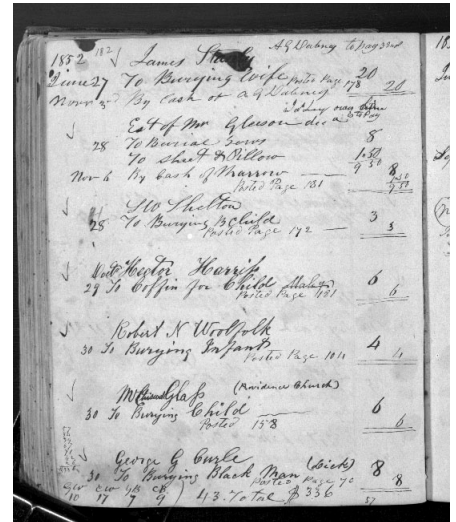 1852 182 James A G Dabney to Pay
June 27 To Burying Wife Posted Page 178 20
Novr By Cash of A G Dabney 20
Est of Mr Gleeson decd
28 To Burial 8
To Sheet & Pillow 1.50
9 50
Nov 6 By Cash of Marrow 8
Posted Page 131 1.50
9 50
S W Shelton
28 To Burying B Child 3
Posted Page 172 3
Hector Harris
29 To Coffin for Child 6
Posted Page 131 6
Robert N Woolfolk
30 To Burying Infant 4
Posted Page 104 4
Glass (Providence Church)
30 To Burying Child 6
Posted 158 6
George G Curle (Lick)
30 To Burying Black Man 8
Posted Page 70 8
GW CW CB
10 17 7 9 43. Total $336